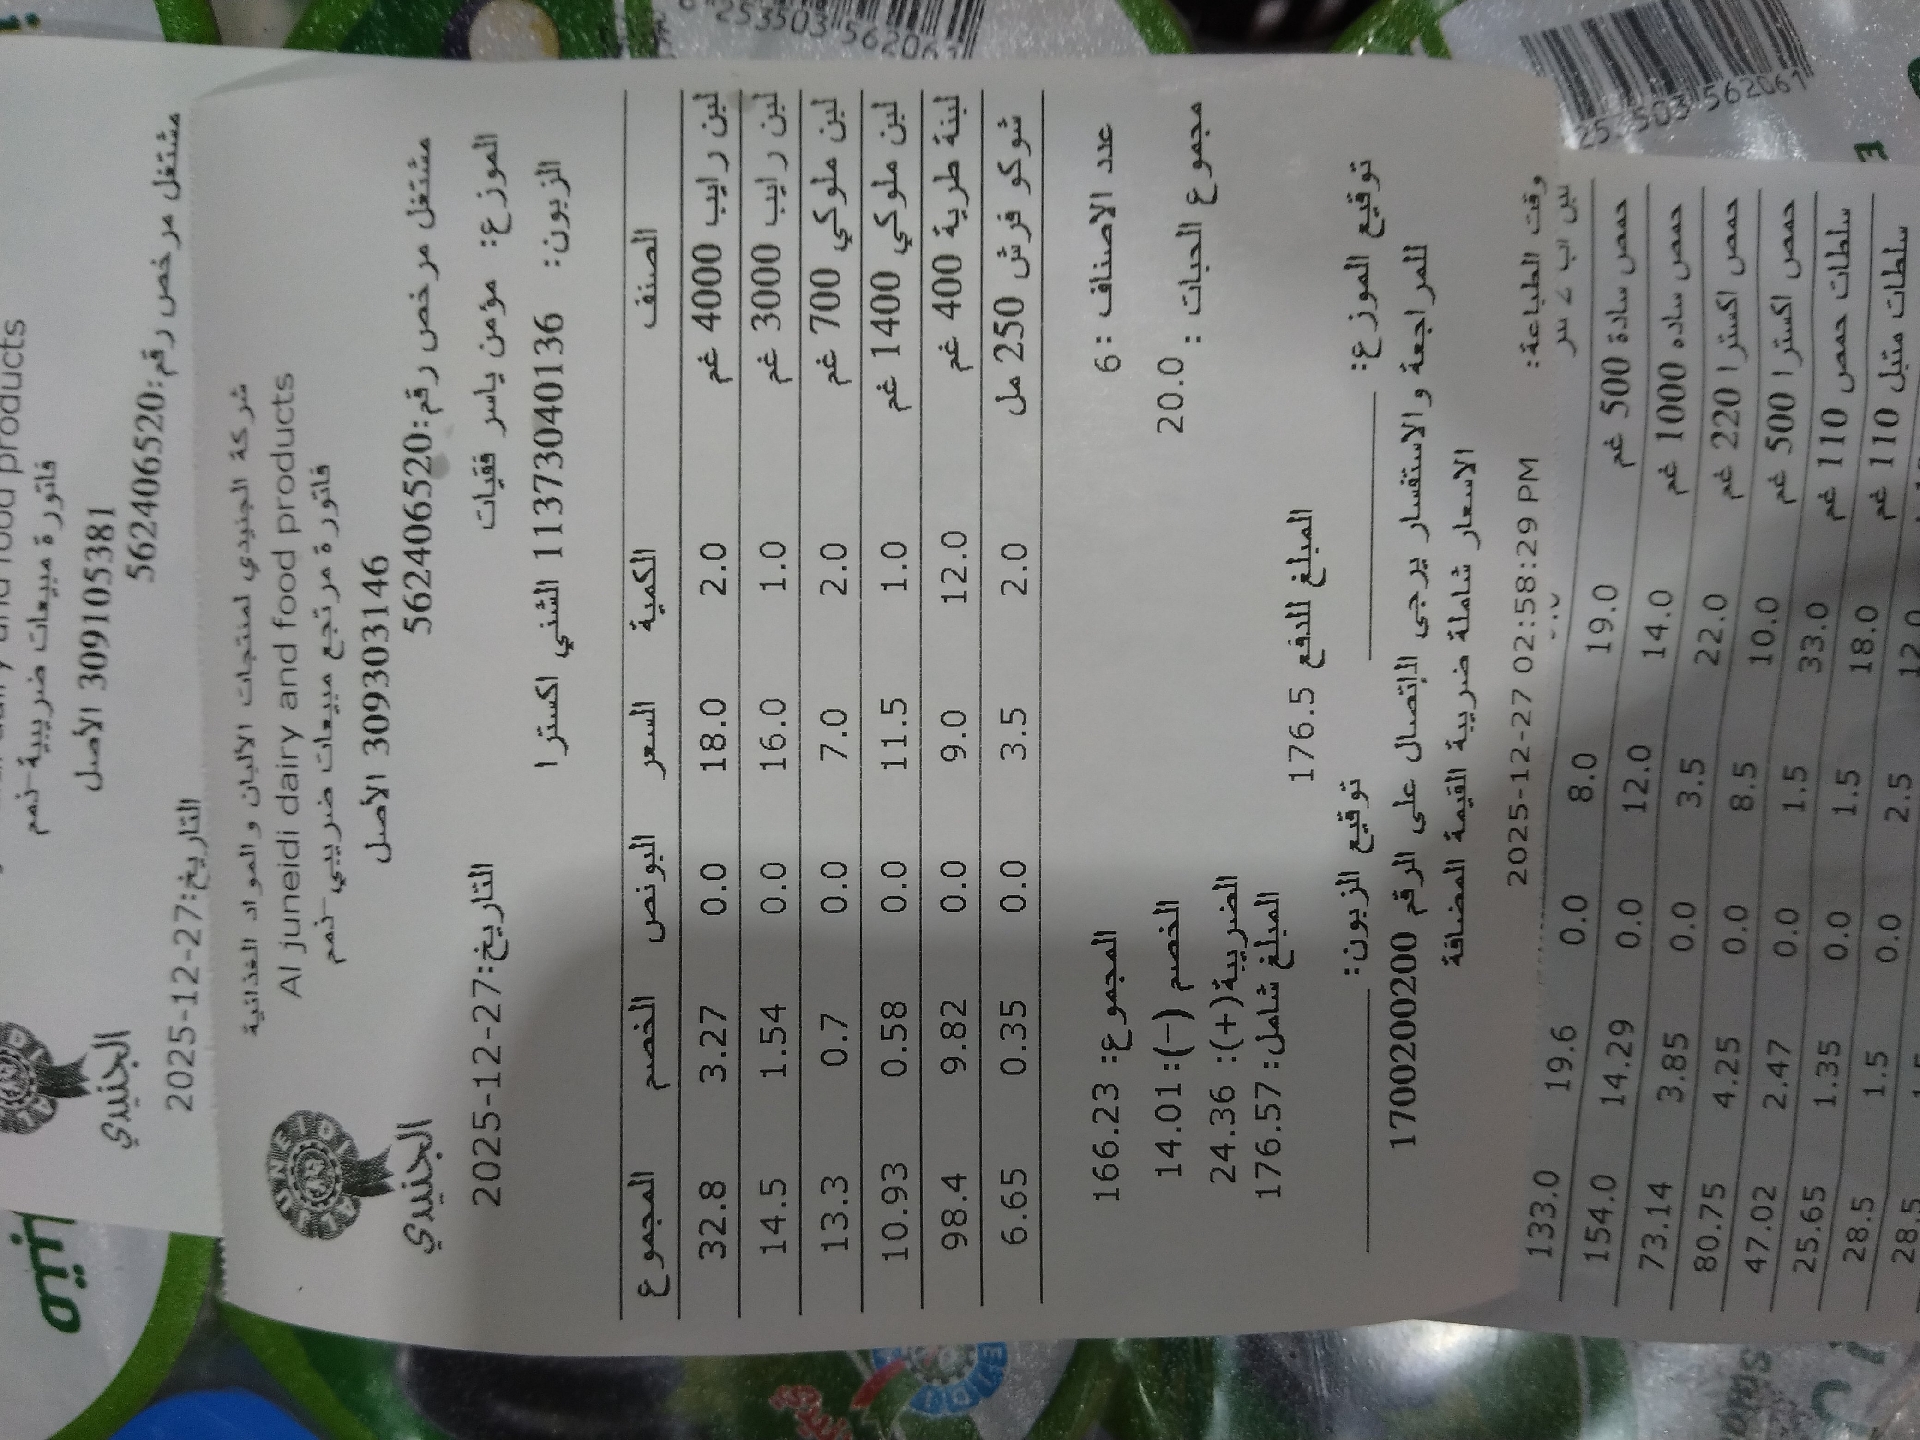 Al juneidi dairy and food products
فاتورة مبيعات ضريبية-ذمم
309105381 الأصل
مشتغل مرخص رقم:562406520
الجنيدي
التاريخ:27-12-2025
شركة الجنيدي لمنتجات الالبان والمواد الغذائية
Al juneidi dairy and food products
فاتورة مرتجع مبيعات ضريبي-ذمم
309303146 الأصل
مشتغل مرخص رقم:562406520
الجنيدي
الموزع: مؤمن ياسر فقيات
التاريخ:27-12-2025
الزبون: 1137304136 الشني اكسترا
الصنف الكمية السعر البونص الخصم المجموع
لبن رايب 4000 غم 2.0 18.0 0.0 3.27 32.8
لبن رايب 3000 غم 1.0 16.0 0.0 1.54 14.5
لبن ملوكي 700 غم 2.0 7.0 0.0 0.7 13.3
لبن ملوكي 1400 غم 1.0 11.5 0.0 0.58 10.93
لبنة طرية 400 غم 12.0 9.0 0.0 9.82 98.4
شوكو فرش 250 مل 2.0 3.5 0.0 0.35 6.65
عدد الاصناف : 6 المجموع: 166.23
مجموع الحبات : 20.0 الخصم (-): 14.01
الضريبة(+): 24.36
المبلغ شامل: 176.57
المبلغ للدفع 176.5
توقيع الموزع: توقيع الزبون:
للمراجعة والاستفسار يرجى الاتصال على الرقم 1700200200
الاسعار شاملة ضريبة القيمة المضافة
وقت الطباعة: 2025-12-27 02:58:29 PM
133.0
حمص سادة 500 غم 19.0 8.0 0.0 19.6 154.0
حمص ساده 1000 غم 14.0 12.0 0.0 14.29 73.14
حمص اكسترا 220 غم 22.0 3.5 0.0 3.85 80.75
حمص اكسترا 500 غم 10.0 8.5 0.0 4.25 47.02
سلطات حمص 110 غم 33.0 1.5 0.0 2.47 25.65
سلطات متبل 110 غم 18.0 1.5 0.0 1.35 28.5
12.0 2.5 0.0 1.5 28.5
253503 562061